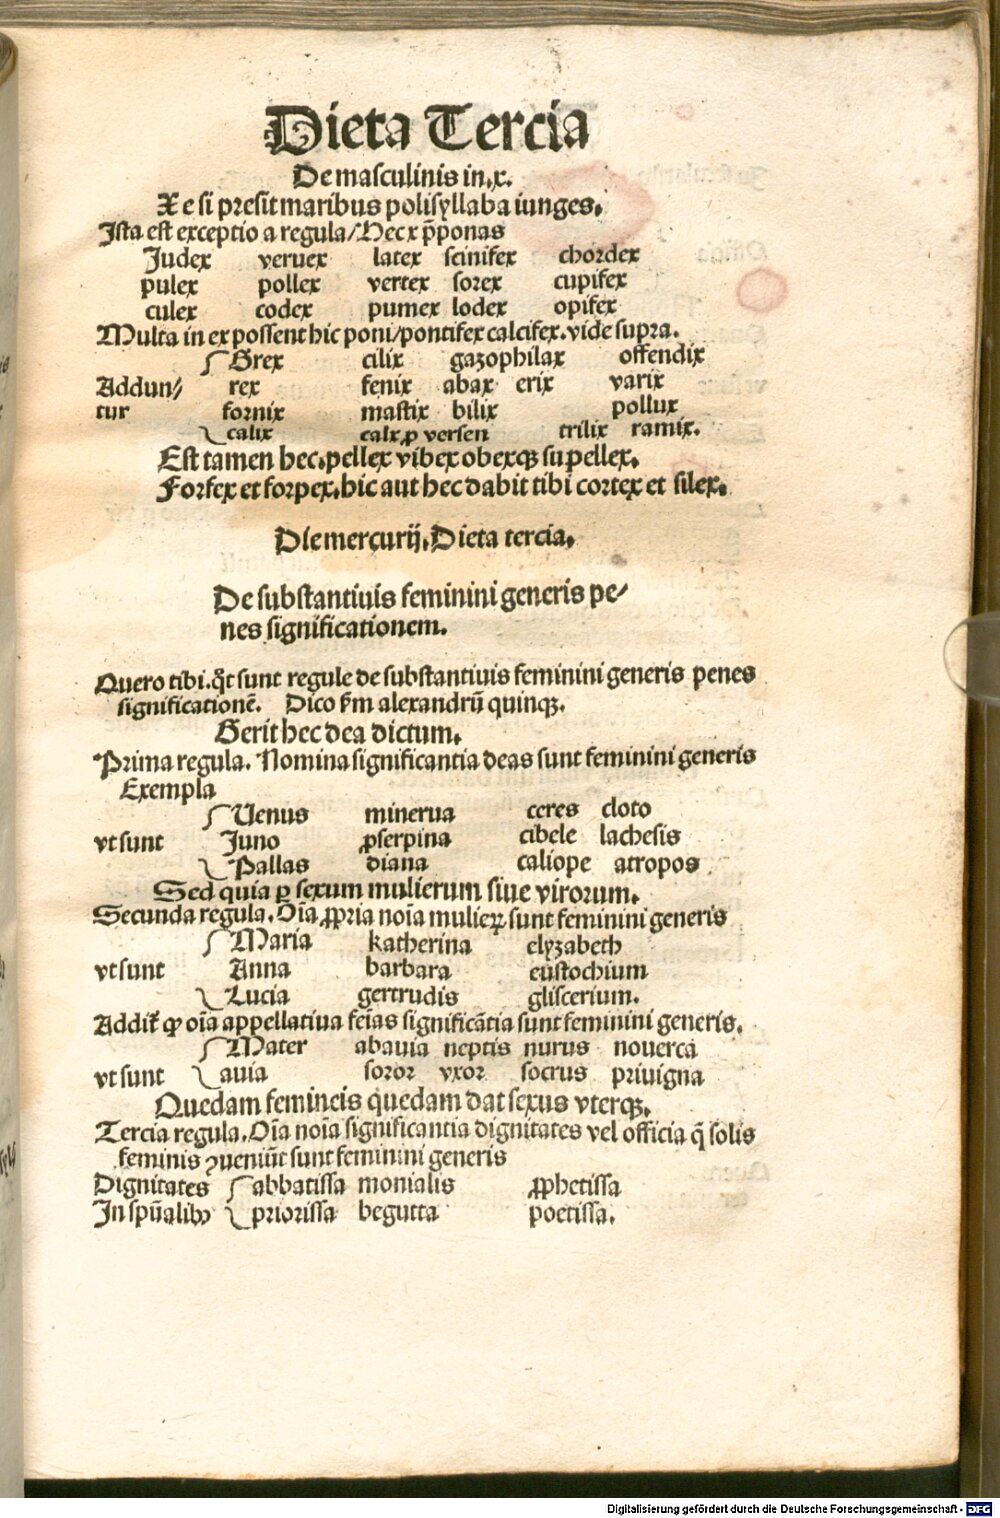 Dieta Tercia
De masculinis in.x.
Xe si presit maribus polisyllaba iunges.
Ista est exceptio a regula/Hec x p̄ponas
Judex veruex latex scinifex chordex
pulex pollex vertex sorex cupifex
culex codex pumex lodex opifex
Multa in ex possent hic poni/pontifex calcifex.vide supra.
Grex cilix gazophilax offendix
Addun/ rex fenix abax erix varix
tur fornix mastix bilix pollux
calix calx,ꝓ versen trilix ramix.
Est tamen hec.pellex vibex obexqꝫ supellex.
Forfex et forpex.hic aut hec dabit tibi cortex et silex.
Die mercurij.Dieta tercia.
De substantiuis feminini generis pe/
nes significationem.
Quero tibi.q̊t sunt regule de substantiuis feminini generis penes
significationē. Dico ẜm alexandrū quinqꝫ.
Gerit hec dea dictum.
Prima regula. Nomina significantia deas sunt feminini generis
Exempla
Uenus minerua ceres cloto
vt sunt Juno ꝓserpina cibele lachesis
Pallas diana caliope atropos
Sed quia ꝑ sexum mulierum siue virorum.
Secunda regula.Oīa ꝓpria noīa mulieꝝ sunt feminini generis
Maria katherina elyzabeth
vt sunt Anna barbara eustochium
Lucia gertrudis gliscerium.
Addit̄ ꝙ oīa appellatiua feīas significātia sunt feminini generis.
Mater abauia neptis nurus nouerca
vt sunt auia soror vxor socrus priuigna
Quedam femineis quedam dat sexus vterqꝫ.
Tercia regula.Oīa noīa significantia dignitates vel officia q̄ solis
feminis ꝯueniūt sunt feminini generis
Dignitates abbatissa monialis ꝓphetissa
In spūalibꝫ priorissa begutta poetissa.
Digitalisierung gefördert durch die Deutsche Forschungsgemeinschaft - DFG